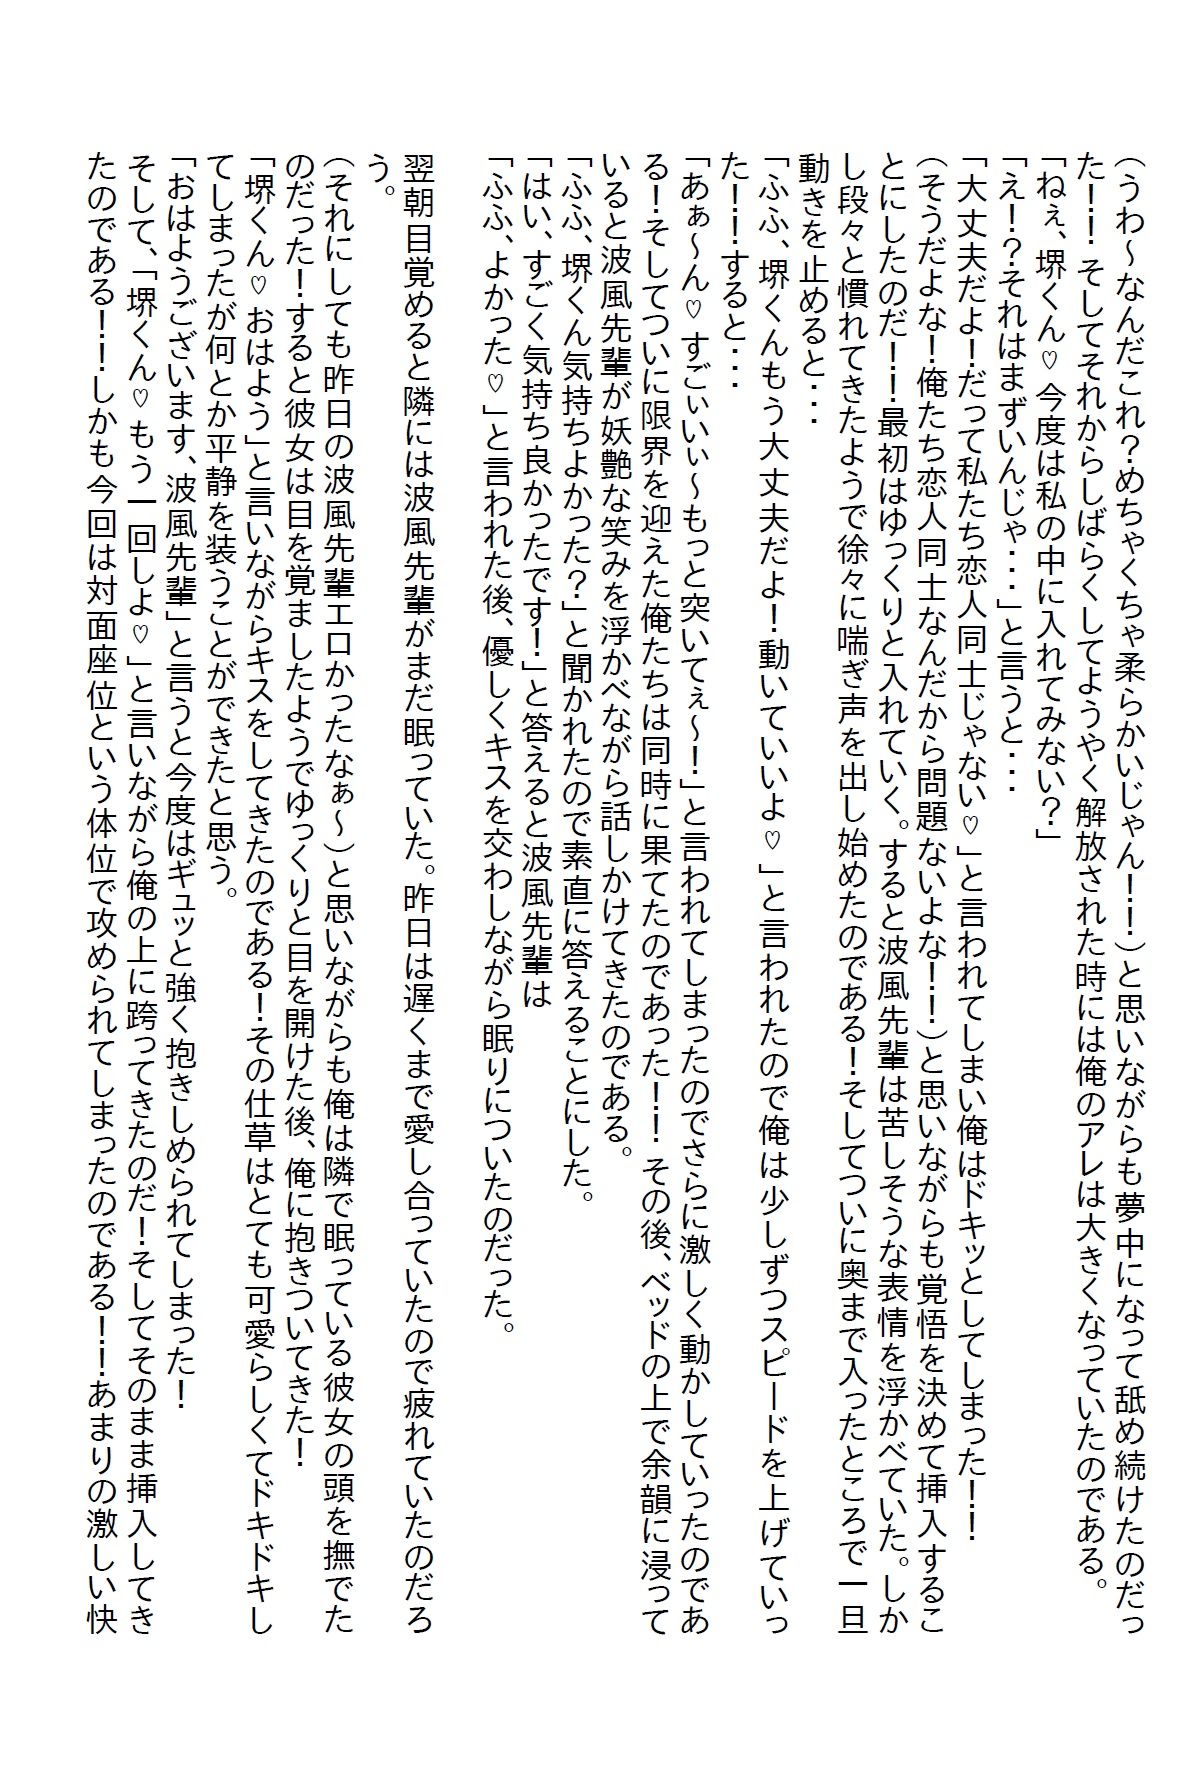 （うわ～なんだこれ？めちゃくちゃ柔らかいじゃん！！）と思いながらも夢中になって舐め続けたのだっ
た！！そしてそれからしばらくしてようやく解放された時には俺のアレは大きくなっていたのである。
「ねぇ、堺くん♡今度は私の中に入れてみない？」
「え！？それはまずいんじゃ・・・」と言うと・・・
「大丈夫だよ！だって私たち恋人同士じゃない♡」と言われてしまい俺はドキッとしてしまった！！
（そうだよな！俺たち恋人同士なんだから問題ないよな！！）と思いながらも覚悟を決めて挿入するこ
とにしたのだ！！最初はゆっくりと入れていく。すると波風先輩は苦しそうな表情を浮かべていた。しか
し段々と慣れてきたようで徐々に喘ぎ声を出し始めたのである！そしてついに奥まで入ったところで一旦
動きを止めると・・・
「ふふ、堺くんもう大丈夫だよ！動いていいよ♡」と言われたので俺は少しずつスピードを上げていっ
た！！すると・・・
「あぁ～ん♡すごぃいぃ～もっと突いてぇ～！」と言われてしまったのでさらに激しく動かしていったのであ
る！そしてついに限界を迎えた俺たちは同時に果てたのであった！！その後、ベッドの上で余韻に浸って
いると波風先輩が妖艶な笑みを浮かべながら話しかけてきたのである。
「ふふ、堺くん気持ちよかった？」と聞かれたので素直に答えることにした。
「はい、すごく気持ち良かったです！」と答えると波風先輩は
「ふふ、よかった♡」と言われた後、優しくキスを交わしながら眠りについたのだった。
翌朝目覚めると隣には波風先輩がまだ眠っていた。昨日は遅くまで愛し合っていたので疲れていたのだろ
う。
（それにしても昨日の波風先輩エロかったなぁ～）と思いながらも俺は隣で眠っている彼女の頭を撫でた
のだった！すると彼女は目を覚ましたようでゆっくりと目を開けた後、俺に抱きついてきた！
「堺くん♡おはよう」と言いながらキスをしてきたのである！その仕草はとても可愛らしくてドキドキし
てしまったが何とか平静を装うことができたと思う。
「おはようございます、波風先輩」と言うと今度はギュッと強く抱きしめられてしまった！
そして、「堺くん♡もう一回しよ♡」と言いながら俺の上に跨ってきたのだ！そしてそのまま挿入してき
たのである！！しかも今回は対面座位という体位で攻められてしまったのである！！あまりの激しい快